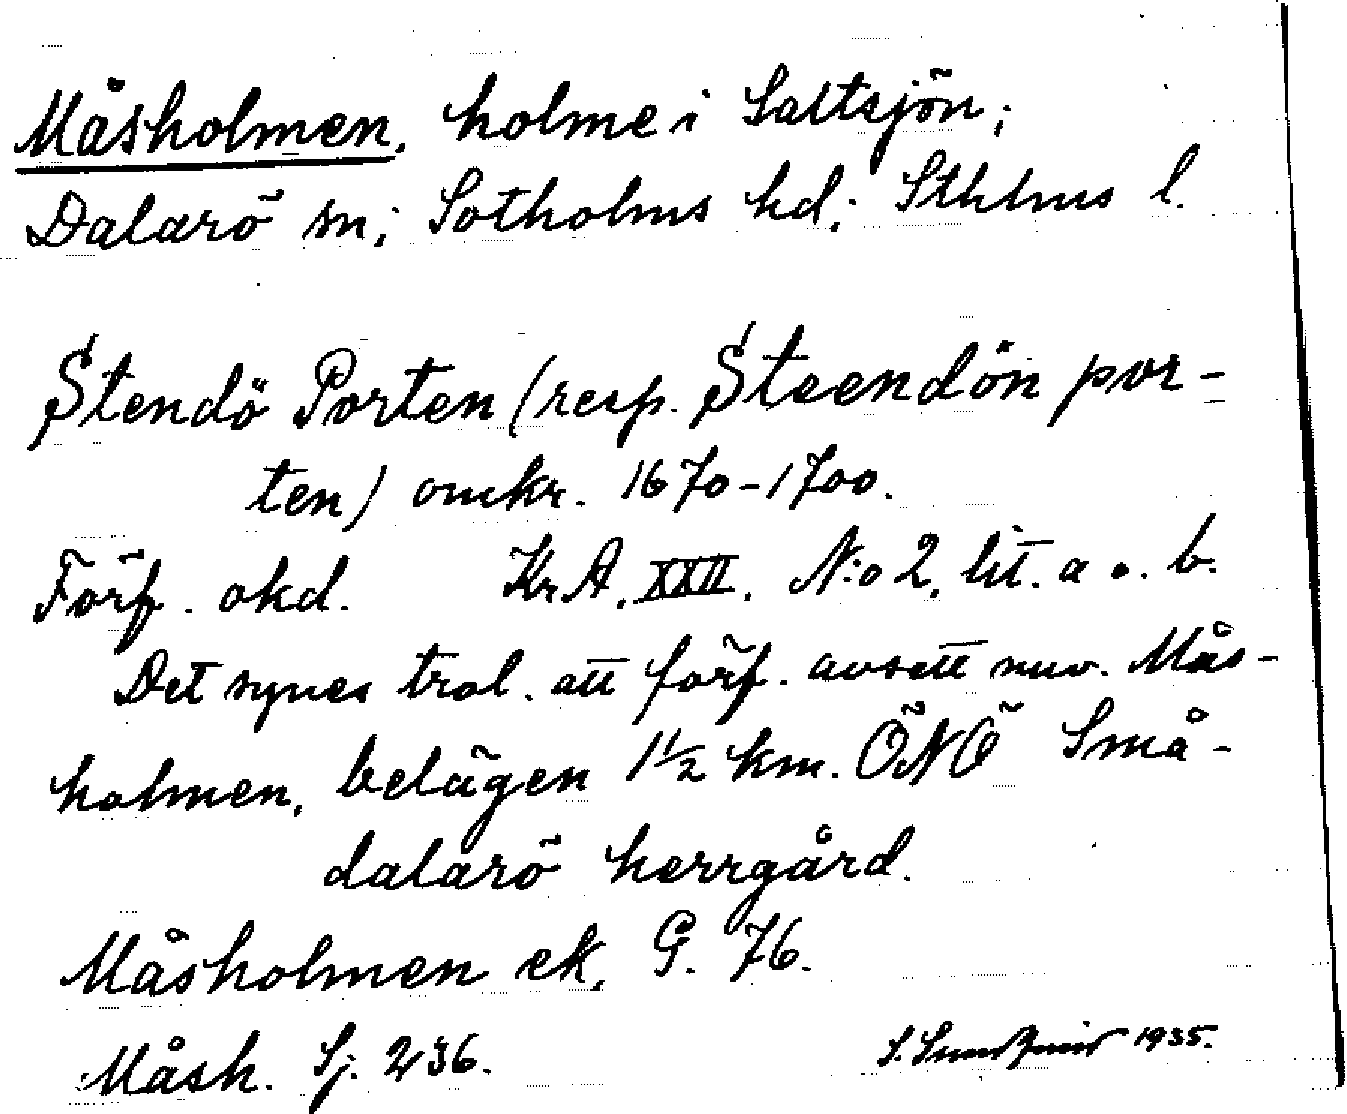 Måsholmen, holme i Saltsjön;
Dalarö sn; Sotholms hd; Sthlms l.
Stendö Porten (resp. Steendön por-
ten) omkr. 1670-1700.
Förf. okd. Kr.A. XXII. N:o 2. lit. a o. b.
Det synes trol. att förf. avsett nuv. Mås-
holmen, belägen 1½ km. ÖNÖ Små-
dalarö herrgård.
Måsholmen ek. G. 76.
Måsh. Sj. 236.
1935.